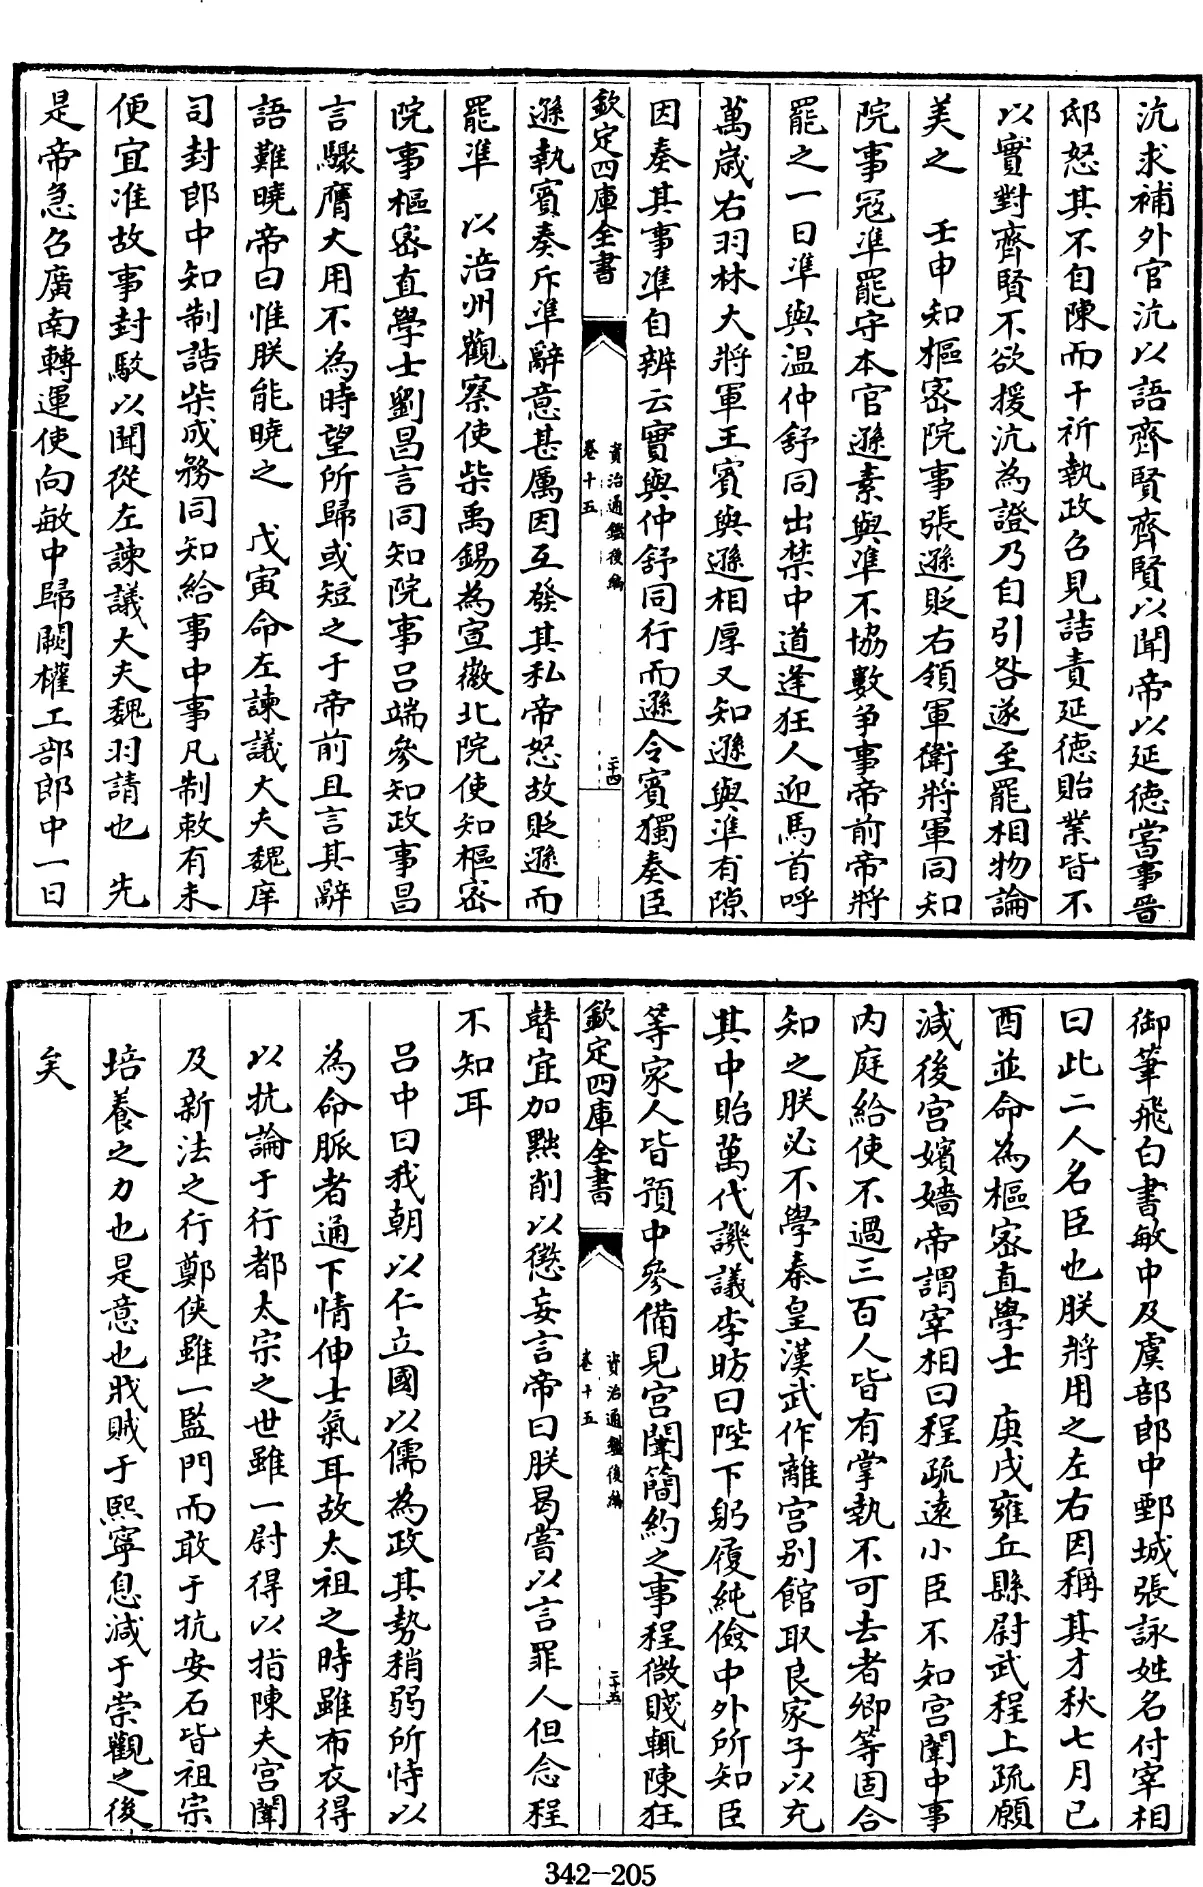 沆求補外官沆以語齊賢齊賢以聞帝以延德嘗事晉
邸怒其不自陳而干祈執政召見詰責延德貽業皆不
以實對齊賢不欲援沆為證乃自引咎遂至罷相物論
美之　壬申知樞密院事張遜貶右領軍衛將軍同知
院事寇準罷守本官遜素與準不協數争事帝前帝將
罷之一日準與温仲舒同出禁中道逢狂人迎馬首呼
萬歳右羽林大將軍王賓與遜相厚又知遜與準有隙
因奏其事準自辨云實與仲舒同行而遜令賓獨奏臣
欽定四庫全書
資治通鑑後編
卷十五
二十四
遜執賓奏斥準辭意甚厲因互發其私帝怒故貶遜而
罷準　以涪州觀察使柴禹錫為宣徽北院使知樞密
院事樞密直學士劉昌言同知院事吕端參知政事昌
言驟膺大用不為時望所歸或短之于帝前且言其辭
語難曉帝曰惟朕能曉之　戊寅命左諫議大夫魏庠
司封郎中知制誥柴成務同知給事中事凡制敕有未
便宜准故事封駁以聞從左諫議大夫魏羽請也　先
是帝急召廣南轉運使向敏中歸闕權工部郎中一日
御筆飛白書敏中及虞部郎中鄄城張詠姓名付宰相
曰此二人名臣也朕將用之左右因稱其才秋七月己
酉並命為樞密直學士　庚戌雍丘縣尉武程上疏願
減後宫嬪嬙帝謂宰相曰程疏遠小臣不知宫闈中事
内庭給使不過三百人皆有掌執不可去者卿等固合
知之朕必不學秦皇漢武作離宫别館取良家子以充
其中貽萬代譏議李昉曰陛下躬履純儉中外所知臣
等家人皆預中參備見宫闈簡約之事程微賤輒陳狂
欽定四庫全書
資治通鑑後編
卷十五
二十五
瞽宜加黜削以懲妄言帝曰朕曷嘗以言罪人但念程
不知耳
吕中曰我朝以仁立國以儒為政其勢稍弱所恃以
為命脈者通下情伸士氣耳故太祖之時雖布衣得
以抗論于行都太宗之世雖一尉得以指陳夫宫闈
及新法之行鄭俠雖一監門而敢于抗安石皆祖宗
培養之力也是意也戕賊于熙寧息減于崇觀之後
矣
342-205